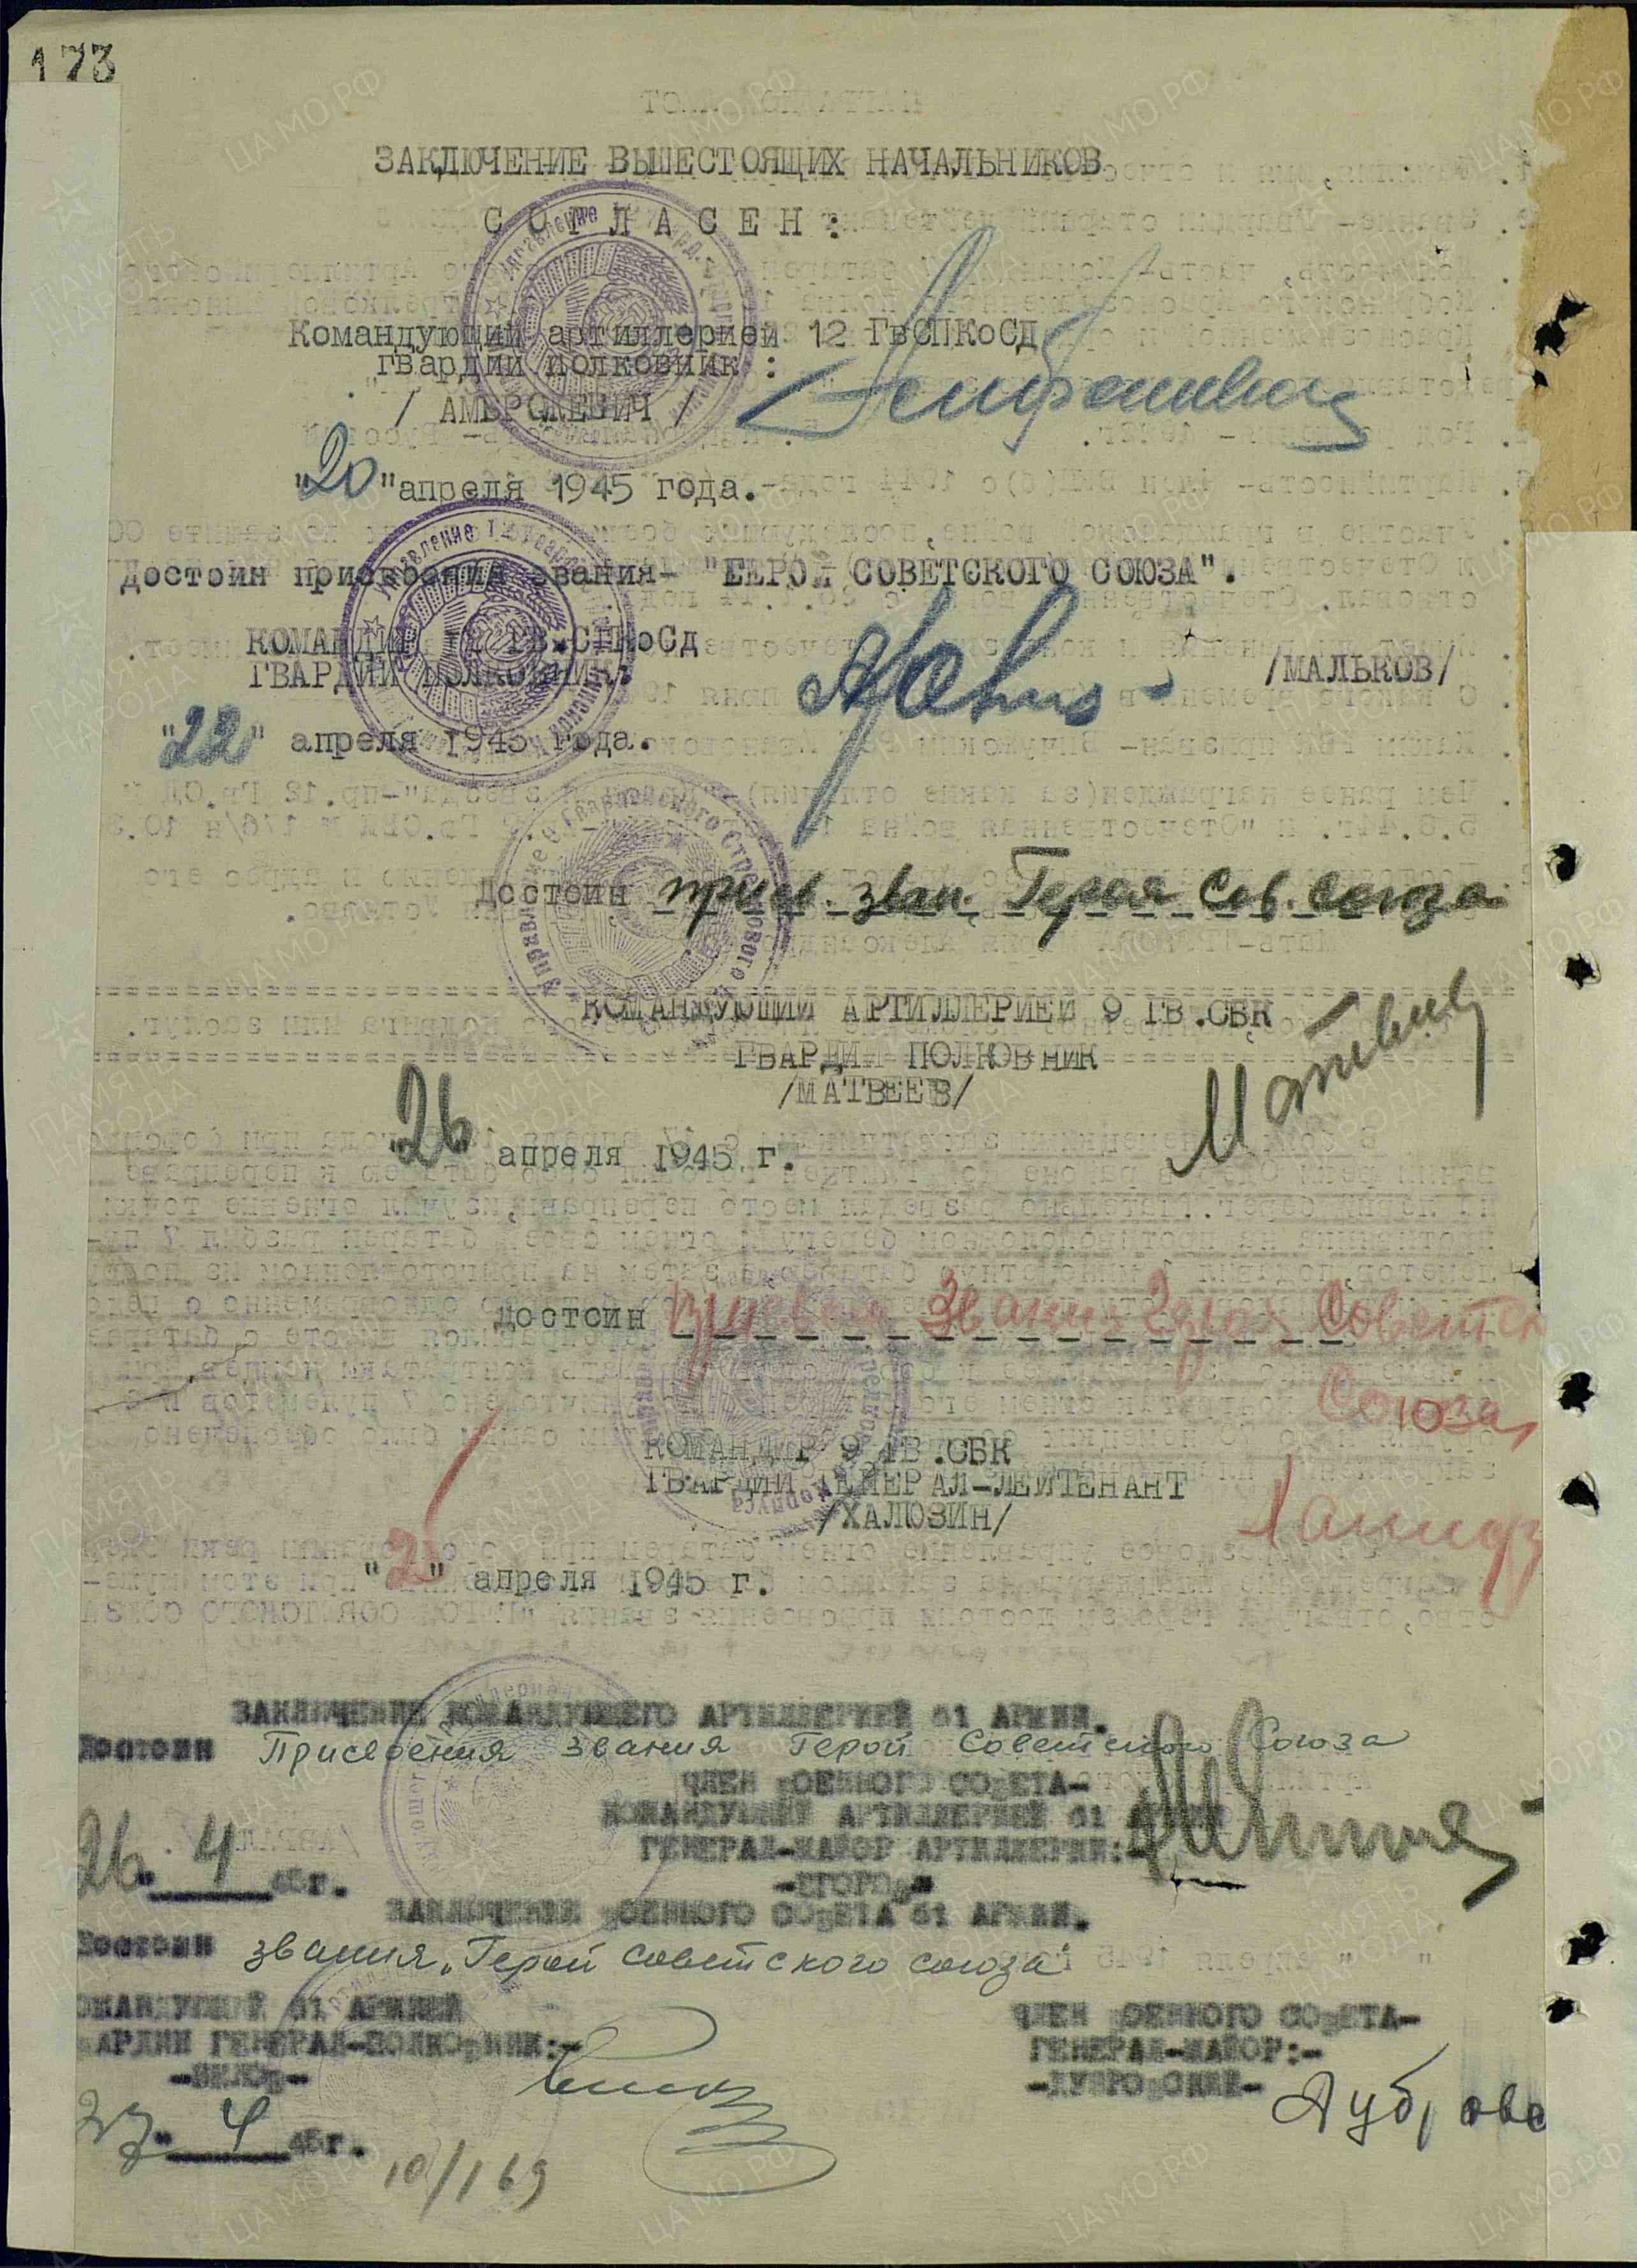 173
ЗАКЛЮЧЕНИЕ ВЫШЕСТОЯЩИХ НАЧАЛЬНИКОВ
СОГЛАСЕН:
Командующий артиллерией 12 ГвСПКоСД
гвардии полковник:
/ АМБРОЖЕВИЧ /
"20" апреля 1945 года.
Достоин присвоения звания- "ГЕРОЙ СОВЕТСКОГО СОЮЗА".
КОМАНДИР 12 ГВ.СПКоСД
ГВАРДИИ ПОЛКОВНИК:
/МАЛЬКОВ/
"22" апреля 1945 года.
Достоин присв. зван. Героя Сов. Союза
КОМАНДУЮЩИЙ АРТИЛЛЕРИЕЙ 9 ГВ.СБК
ГВАРДИИ ПОЛКОВНИК
/МАТВЕЕВ/
"26 апреля 1945 г.
Достоин присвоен Звания Героя Советск
Союза
КОМАНДИР 9 ГВ.СБК
ГВАРДИИ ГЕНЕРАЛ-ЛЕЙТЕНАНТ
/ХАЛЮЗИН/
" " апреля 1945 г.
ЗАКЛЮЧЕНИЕ КОМАНДУЮЩЕГО АРТИЛЛЕРИЕЙ 61 АРМИИ.
Достоин Присвоения звания Герой Советского Союза
ЧЛЕН ВОЕННОГО СОВЕТА-
КОМАНДУЮЩИЙ АРТИЛЛЕРИЕЙ 61 АРМИИ
ГЕНЕРАЛ-МАЙОР АРТИЛЛЕРИИ:-
-ЕГОРОВ-
26. 4 45г.
ЗАКЛЮЧЕНИЕ ВОЕННОГО СОВЕТА 61 АРМИИ.
Достоин звания „Герой Советского союза"
ОМАНДУЮЩИЙ 61 АРМИЕЙ
ВАРДИИ ГЕНЕРАЛ-ПОЛКОВНИК:-
-БЕЛОВ-
ЧЛЕН ВОЕННОГО СОВЕТА-
ГЕНЕРАЛ-МАЙОР:-
-ДУБРОВСКИЙ-
Дубровс
27" 4 45г.
10/169